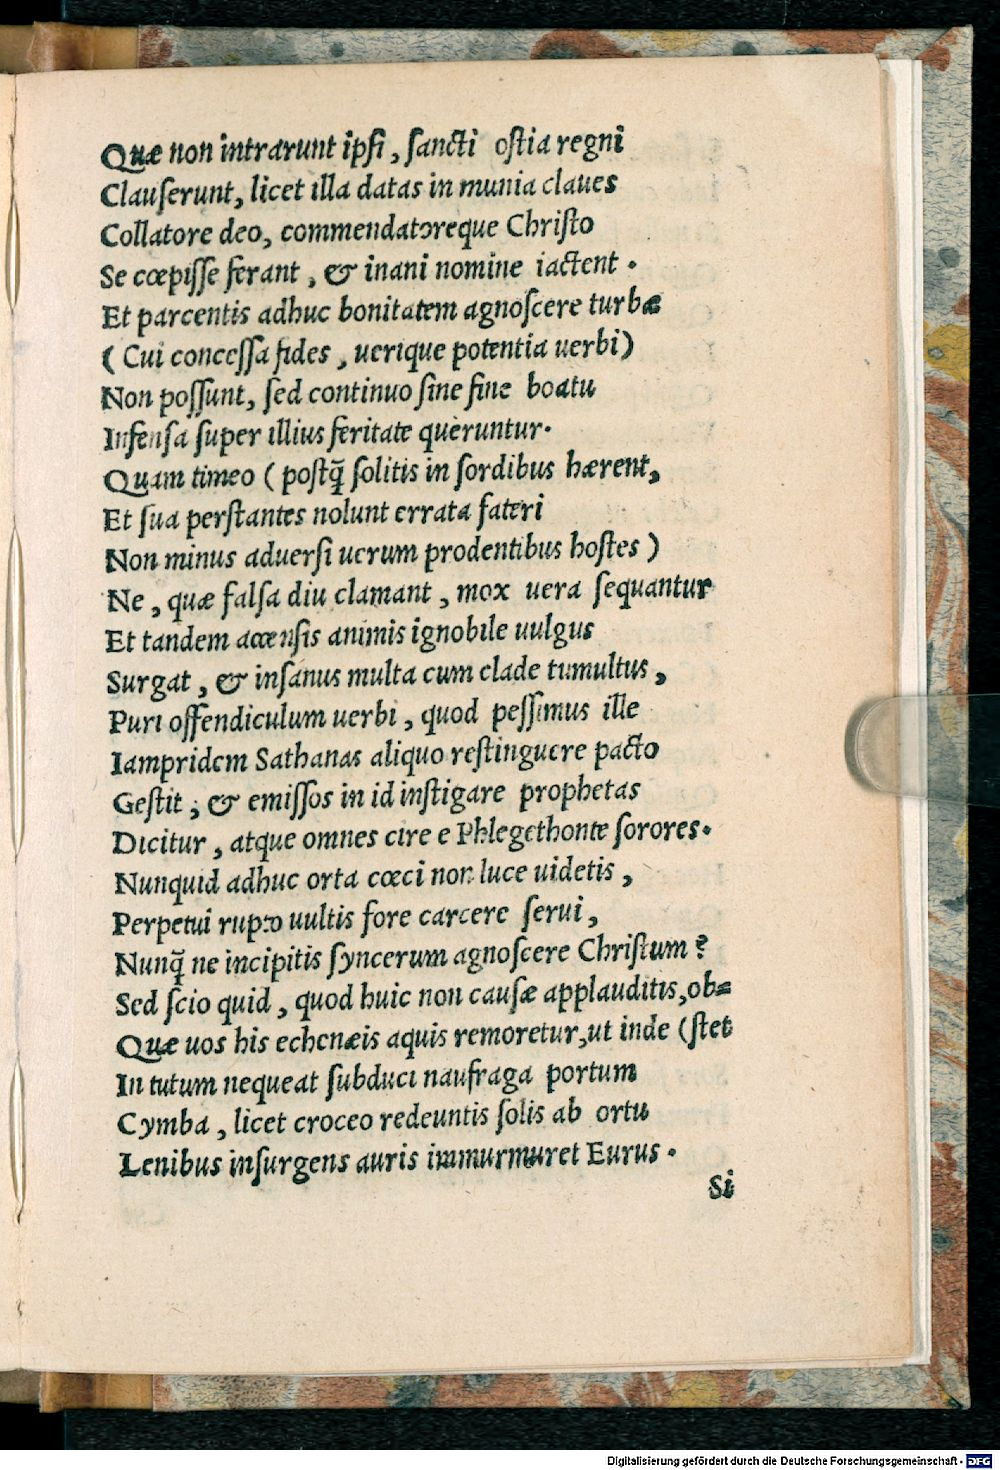 Quæ non intrarunt ipſi, ſancti oſtia regni
Clauſerunt, licet illa datas in munia claues
Collatore deo, commendatoreque Chriſto
Se cœpiſſe ferant, & inani nomine iactent.
Et parcentis adhuc bonitatem agnoſcere turbæ
(Cui conceſſa fides, uerique potentia uerbi)
Non poſſunt, ſed continuo ſine fine boatu
Infenſa ſuper illius feritate queruntur.
Quam timeo (poſtq̃ ſolitis in ſordibus hærent,
Et ſua perſtantes nolunt errata fateri
Non minus aduerſi uerum prodentibus hoſtes)
Ne, quæ falſa diu clamant, mox uera ſequantur
Et tandem accenſis animis ignobile uulgus
Surgat, & inſanus multa cum clade tumultus,
Puri offendiculum uerbi, quod peſſimus ille
Iampridem Sathanas aliquo reſtinguere pacto
Geſtit, & emiſſos in id inſtigare prophetas
Dicitur, atque omnes cire e Phlegethonte ſorores.
Nunquid adhuc orta cœci non luce uidetis,
Perpetui rupto uultis fore carcere ſerui,
Nunq̃ ne incipitis ſyncerum agnoſcere Chriſtum?
Sed ſcio quid, quod huic non cauſæ applauditis, ob=
Quæ uos his echenæis aquis remoretur, ut inde (ſtet
In tutum nequeat ſubduci naufraga portum
Cymba, licet croceo redeuntis ſolis ab ortu
Lenibus inſurgens auris immurmuret Eurus.
Si
Digitalisierung gefördert durch die Deutsche Forschungsgemeinschaft - DFG